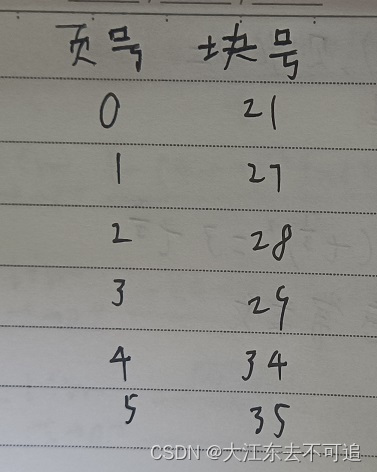 页号 块号
0 21
1 27
2 28
3 29
4 34
5 35
CSDN @大江东去不可追